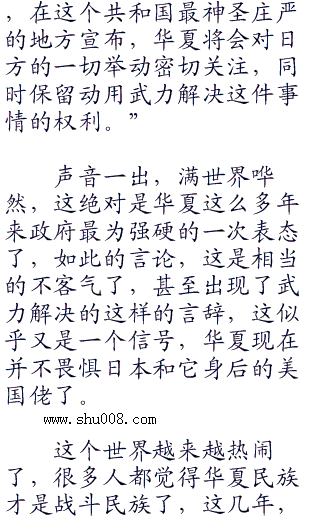 ，在这个共和国最神圣庄严
的地方宣布，华夏将会对日
方的一切举动密切关注，同
时保留动用武力解决这件事
情的权利。”
声音一出，满世界哗
然，这绝对是华夏这么多年
来政府最为强硬的一次表态
了，如此的言论，这是相当
的不客气了，甚至出现了武
力解决的这样的言辞，这似
乎又是一个信号，华夏现在
并不畏惧日本和它身后的美
国佬了。
www.shu008.com
这个世界越来越热闹
了，很多人都觉得华夏民族
才是战斗民族了，这几年，